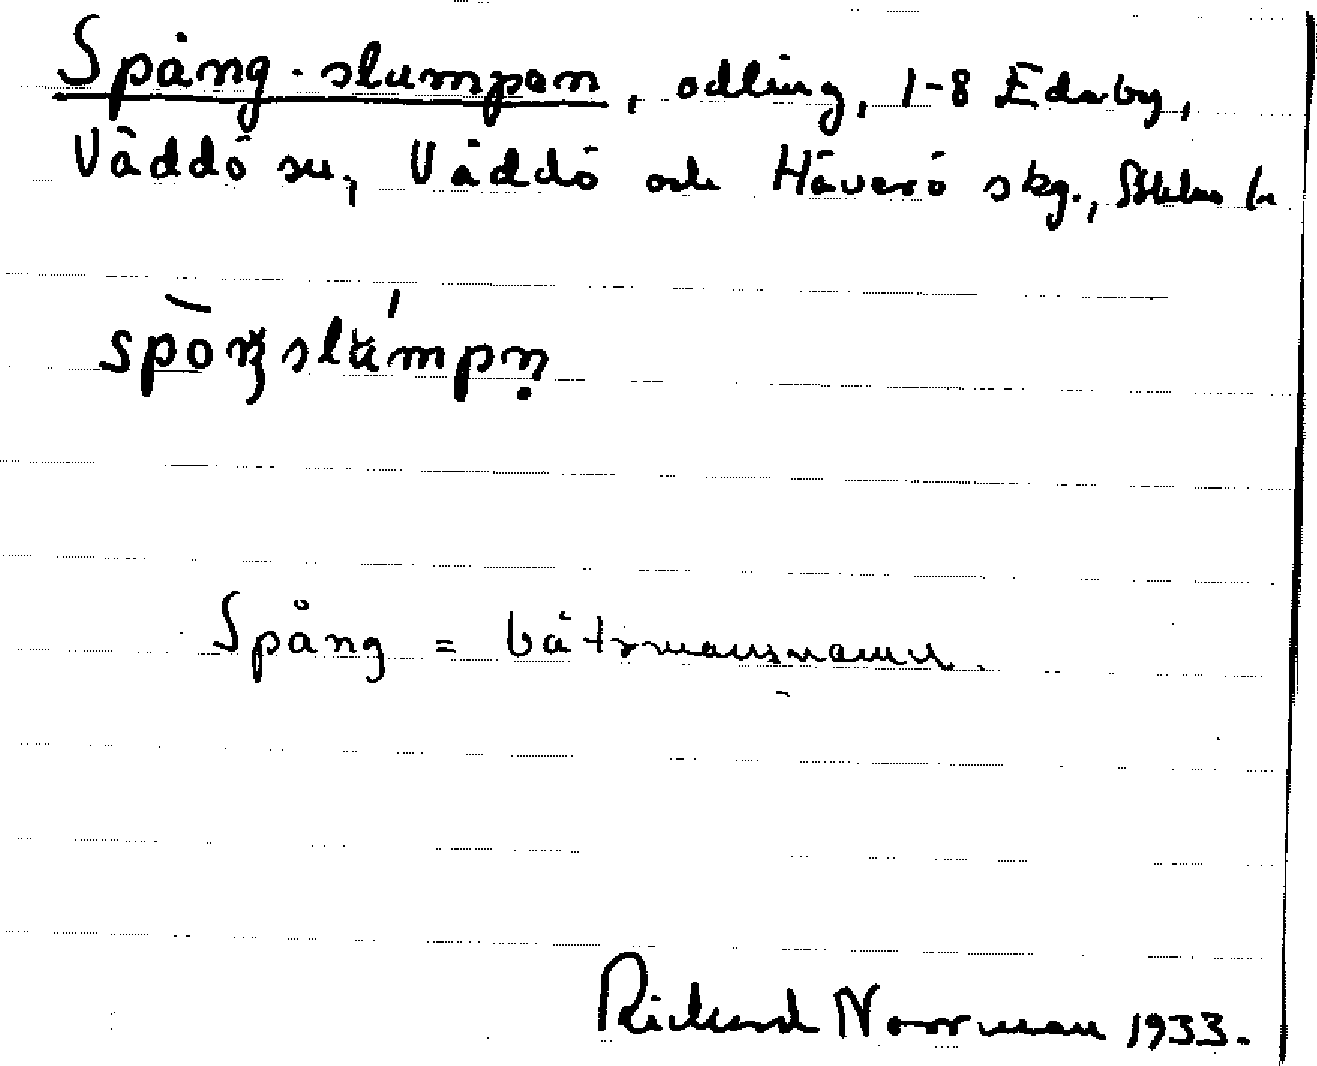 Spång-slumpen, odling, 1-8 Edeby,
Väddö sn, Väddö och Häverö skg., Sthlms l.
spòŋslúmpn̥
Spång = båtsmansnamn.
Rickard Norrman 1933.